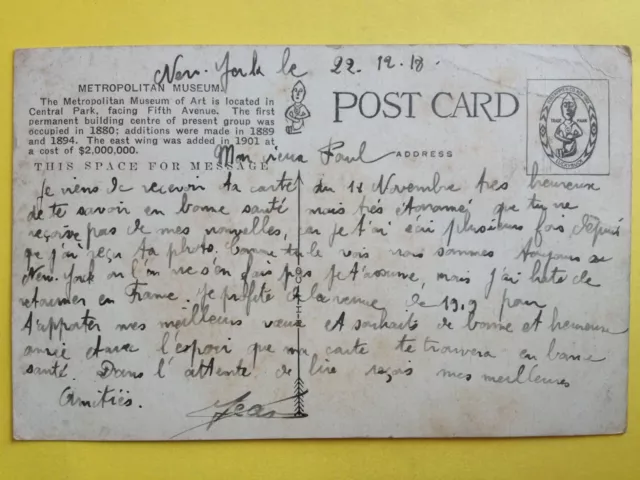 New-York le 22.12.18.
METROPOLITAN MUSEUM.
The Metropolitan Museum of Art is located in
Central Park, facing Fifth Avenue. The first
permanent building centre of present group was
occupied in 1880; additions were made in 1889
and 1894. The east wing was added in 1901 at
a cost of $2,000,000.
POST CARD
THIS SPACE FOR MESSAGE
ADDRESS
Mon vieux Paul
Je viens de recevoir ta carte du 18 Novembre très heureux
de te savoir en bonne santé mais très étonné que tu ne
reçoive pas de mes nouvelles, car je t'ai écri plusieurs fois depuis
que j'ai reçu ta photo. Comme tu le vois nous sommes toujours se
New-York ou l'on ne s'en fais pas je t'assure, mais j'ai hate de
retourner en France. Je profite de la venue de 1919 pour
t'apporter mes meilleurs vœux et souhaits de bonne et heureuse
année et avec l'espoir que ma carte te trouvera en bonne
santé. Dans l'attente de lire reçois mes meilleures
Amitiés. Jean